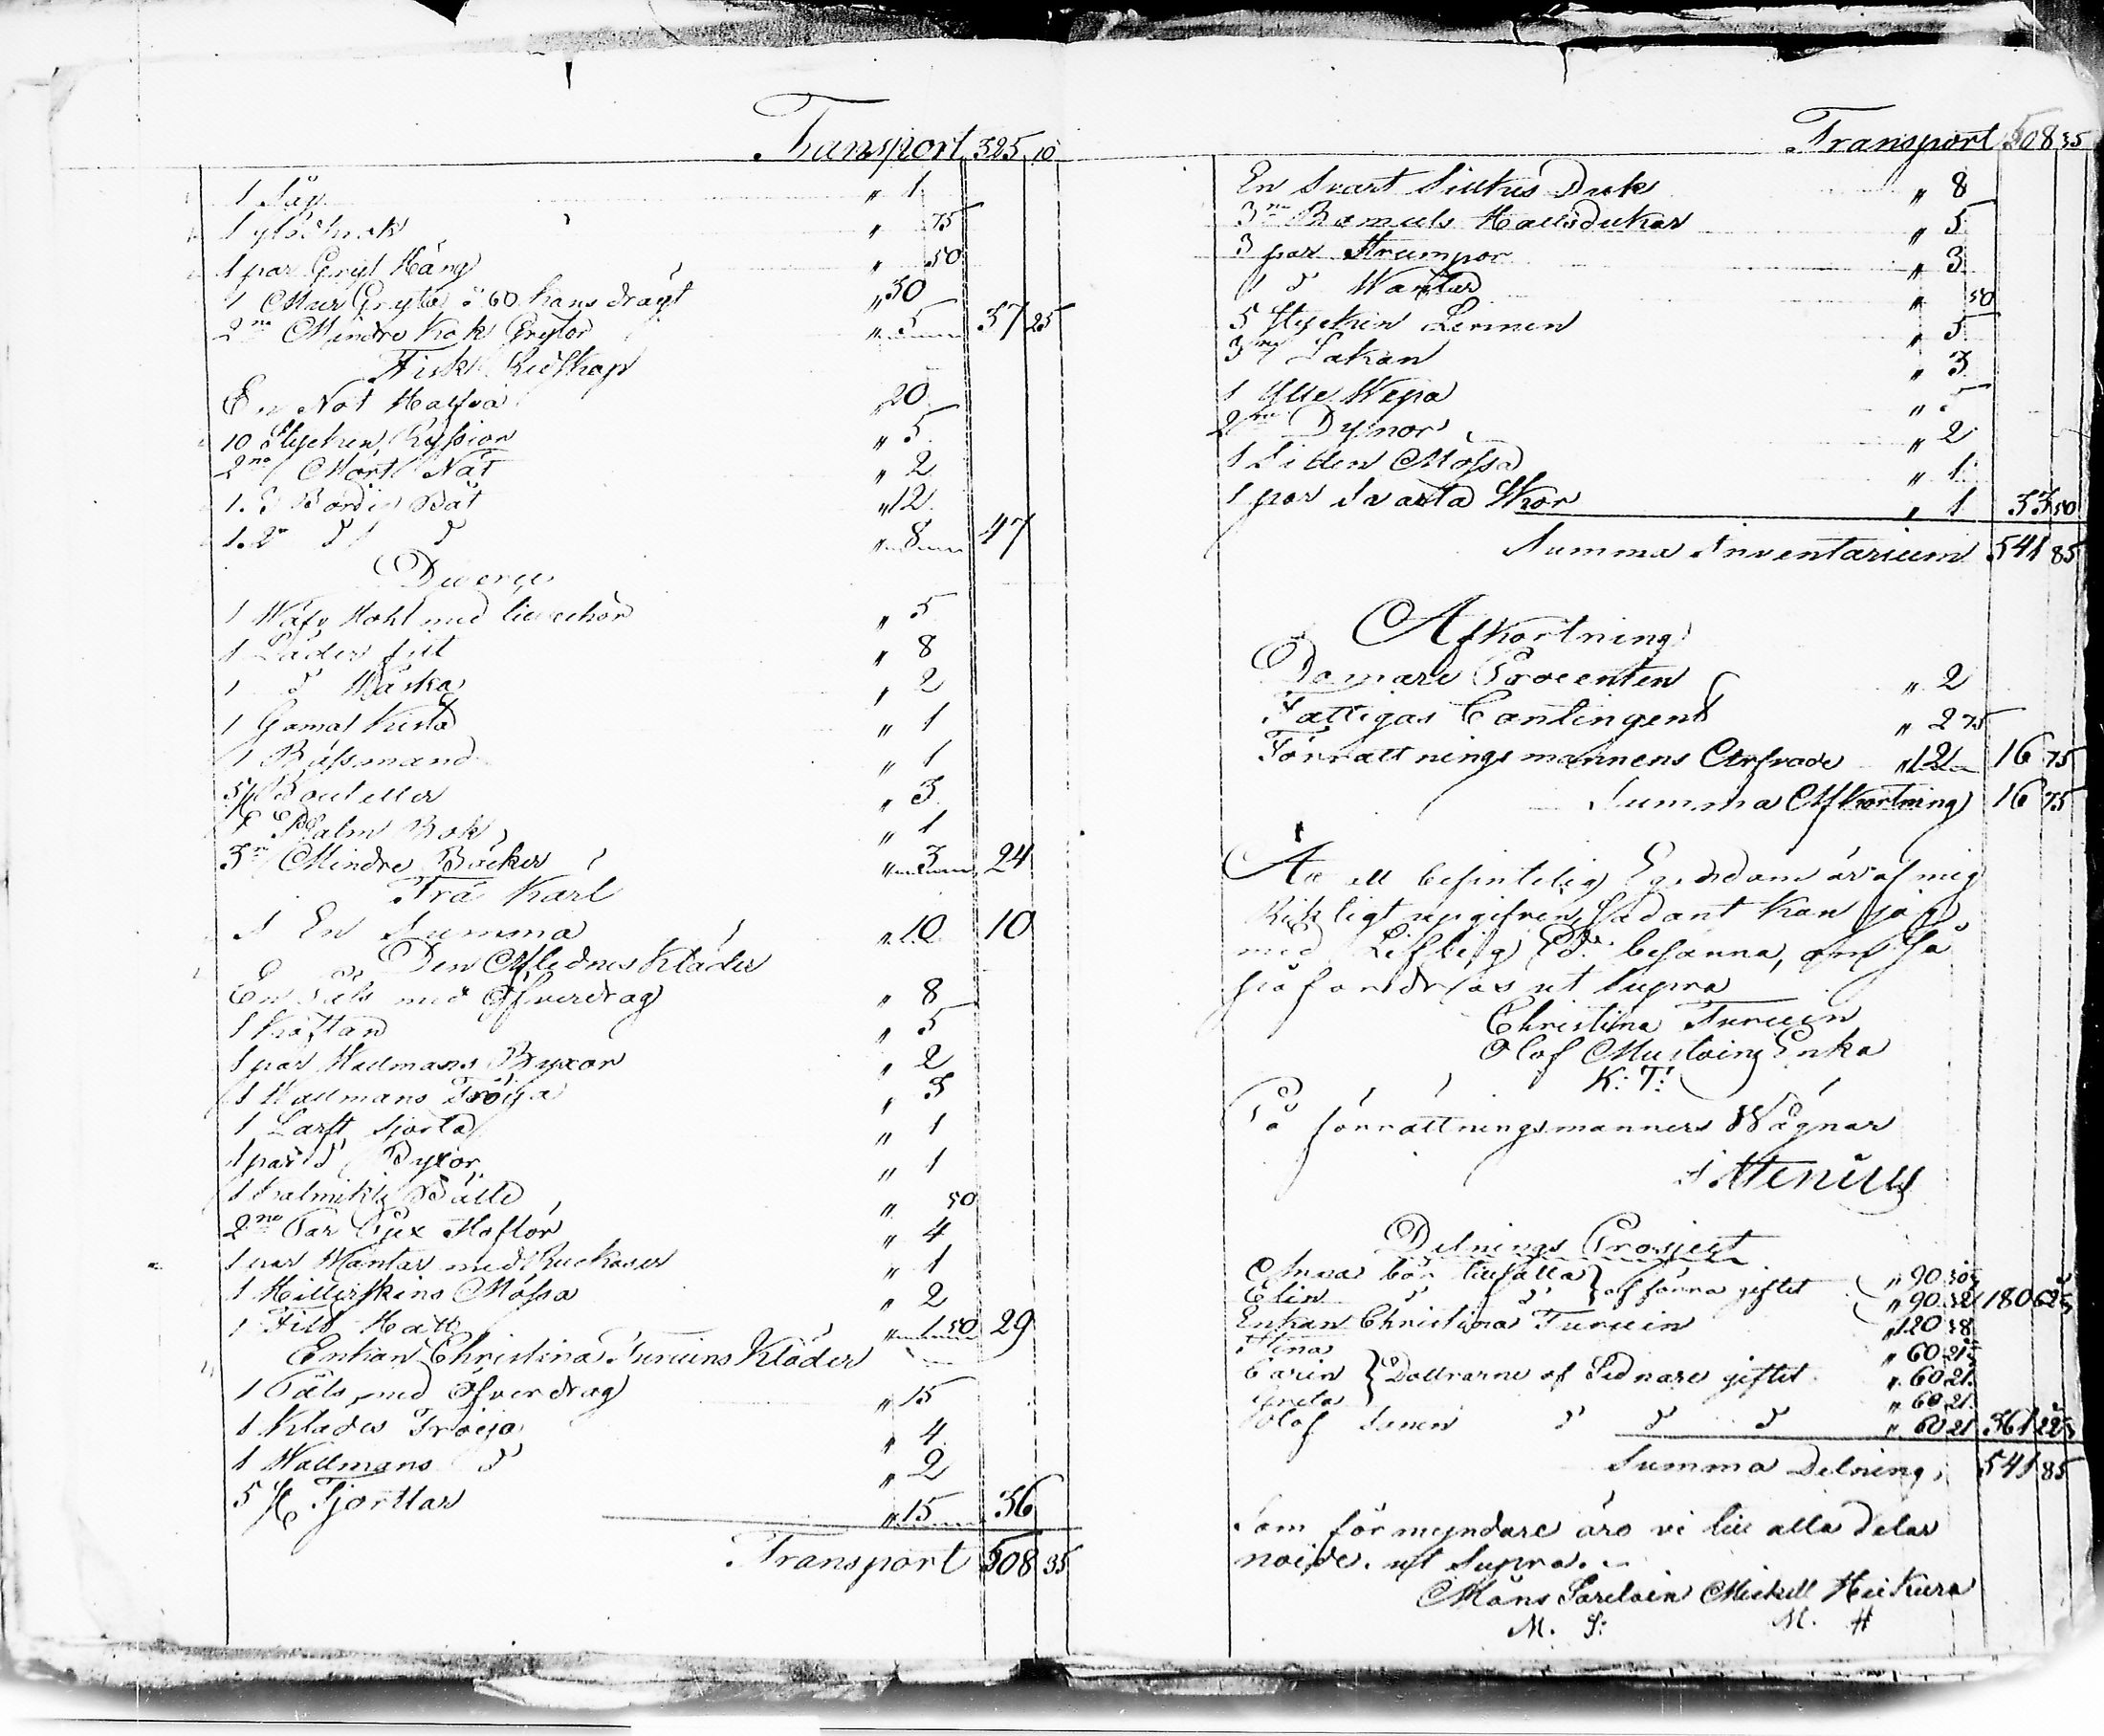 Transport 325 10
1 Såg " 1
1 glödhrok " 75
1 par Gryt Häng " 50
1 Mur Gryta à 60 kans drägt " 30
2ne Mindre Kok Grytor " 5 37 25
Fisk Redskap
En Not Halfva " 20
10 Stycken Ryssior " 5
2ne Mört Nät " 2
1. 3 Bordig Båt " 12
1. 2 D D " 8 47
Diverse
1 Wäf med " 5
1 Läder " 8
1 D Wäska " 2
1 Gamal Kista " 1
1 Büssmand " 1
5 st Bouteller " 3
1 Psalm Bok " 1
3ne Mindre Böcker " 3 24
Trä Kärl
I En Summa " 10 10
Den Aflednes Kläder
En Päls med Öfverdrag " 8
1 Kaftan " 5
1 par Wallmans Byxor " 2
1 Wallmans Tröija " 3
1 Larft Sjorta " 1
1 par D Byxor " 1
1 Kalmiks Bälte " 50
2ne Par Stöflor " 4
1 par Wantar med Ruckaser " 1
1 Hillerskins Mössa " 2
1 Filt Hatt " 1 50 29
Enkan Christina Turuins Kläder
1 Päls med Öfverdrag " 15
1 Klädes Tröija " 4
1 Wallmans D " 2
5 st Tjortlar " 15 36
Transport 508 35
Transport 508 35
En Svart Silkes Duk " 8
3ne Bomuls Halsdukar " 5
3 par Strumpor " 3
1 D Wantar " 50
5 Stycken Lennen " 5
3ne Lakan " 3
1 Ylle Wepa " 5
2ne Dynor " 2
1 Siden Mössa " 1
1 par Svarta Skor " 1 33 50
Summa Inventarium 541 85
Afkortning
Domare Procenten " 2
Fattigas Contingent " 2 75
Förrättnings mannens Arfvode " 12 16 75
Summa Afkortning 16 75
At all befintelig Egendom är af mig
Riktigt upgifven, sådant kan jag
med Liflig Ed besanna, om så
påfordras ut supra
Christina Turuin
Olof Mustoing Enka
K: T:
På förrättningsmanners Wägnar
Delnings Project
Anna bör tillfalla } af förra giftet " 90
Elin D D " 90 180 62
Enkan Christina Turuin " 120 38
Stina " 60 21
Carin } Dottrarne af Sednare giftet " 60 21
Greta " 60 21
Olof Sonen D D D " 60 21 361 22
Summa Delning 541 85
Som förmyndare äro vi till alla delar
nöide. ut Supra.
Måns Sareloin Mickell Heikura
M. S: M. H